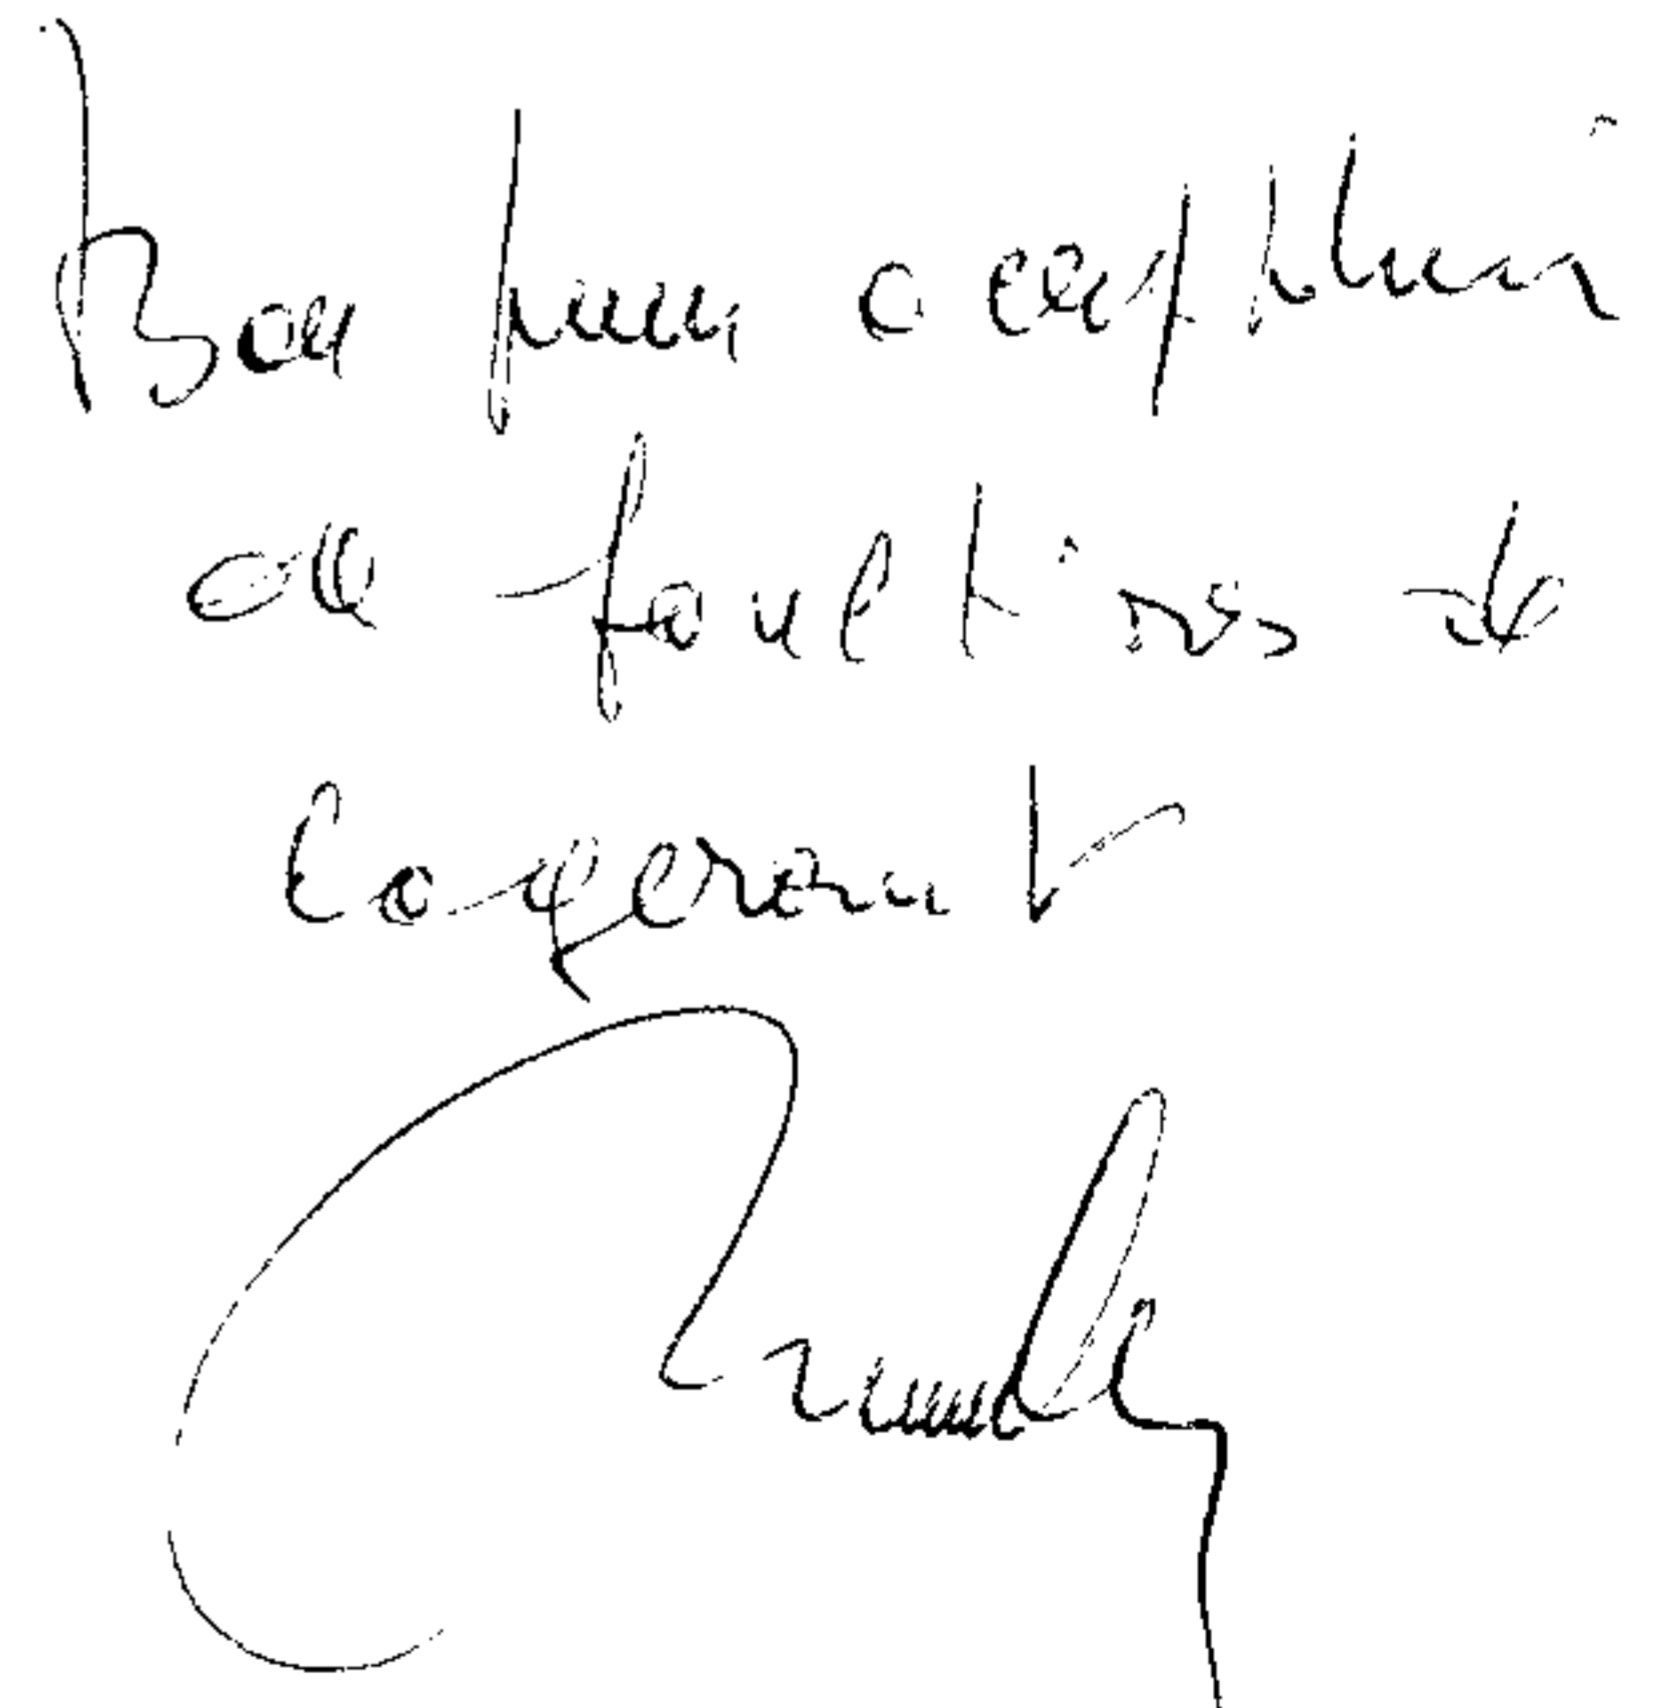 Bon pour acceptation
de fonctions de
Cogérant